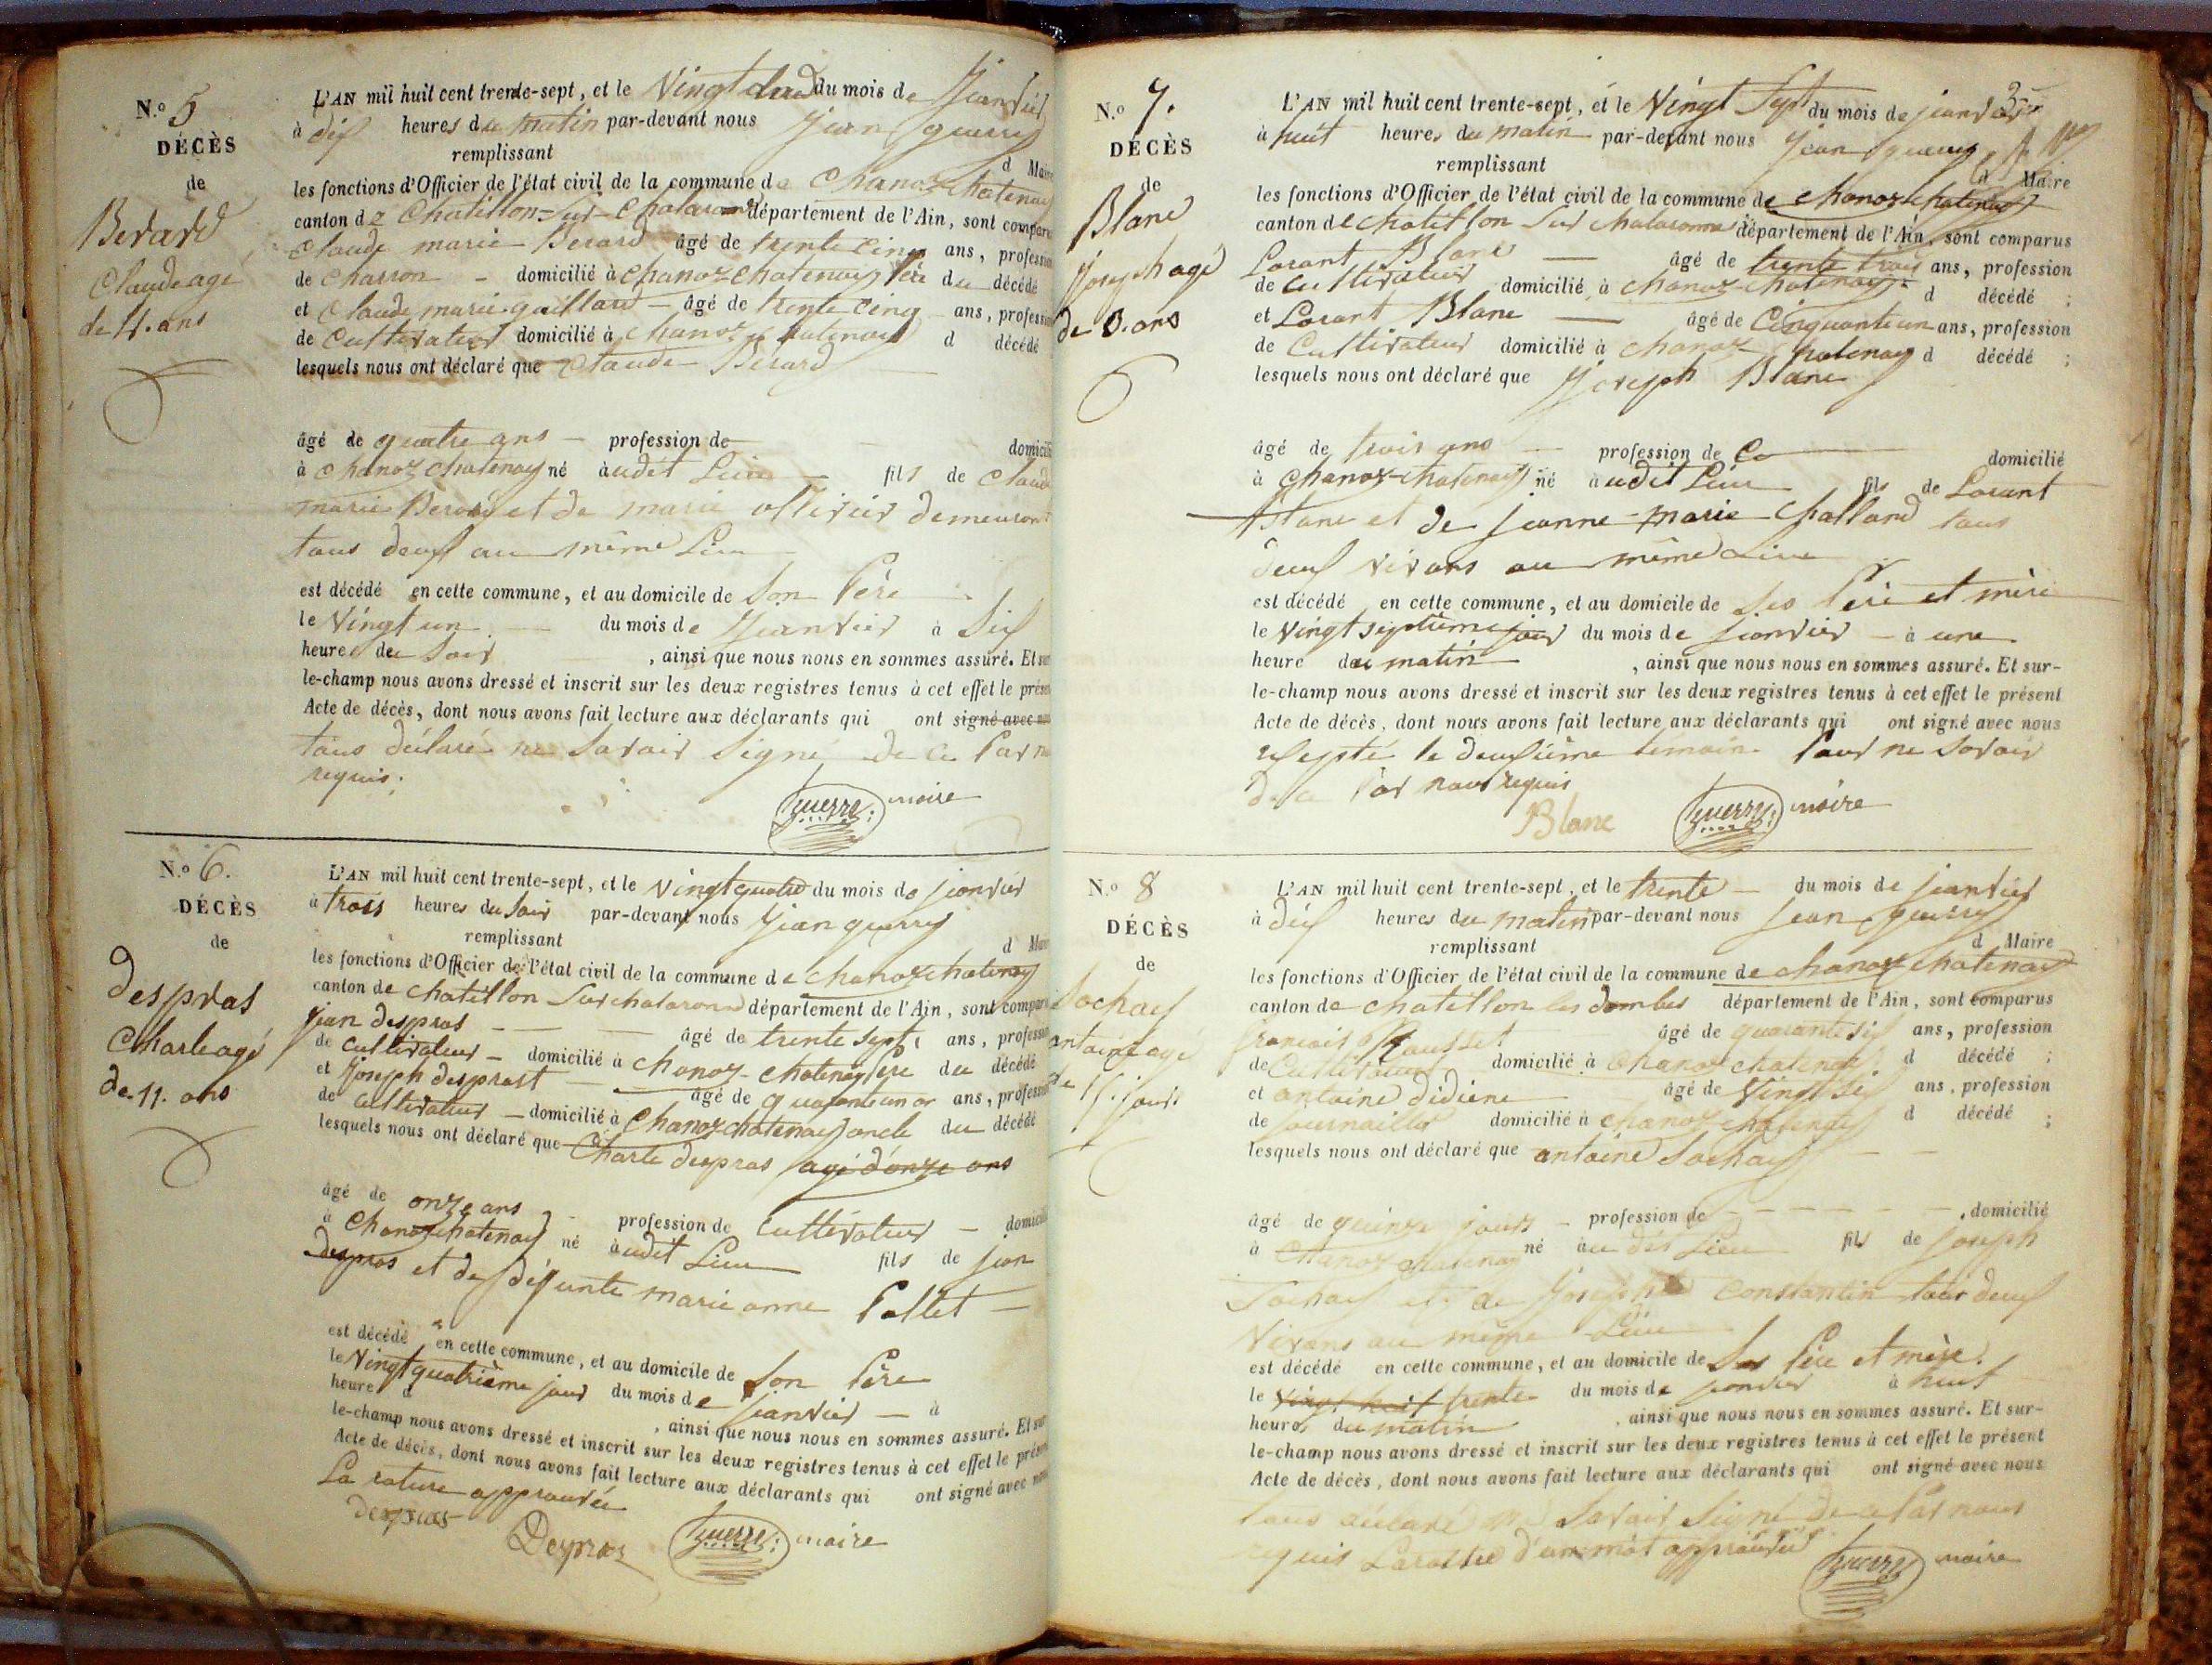 N.o 5
DÉCÈS
de
Berard
Claude agé
de 4. ans
L'AN mil huit cent trente-sept, et le Vingt deux du mois de Janvier
à dix heures du matin par-devant nous Jean guerry
remplissant d Maire
les fonctions d'Officier de l'état civil de la commune de Chanoz chatenay
canton de Chatillon-Sur-Chalaronne département de l'Ain, sont comparus
Claude marie Berard âgé de trente cinq ans, profession
de Charron - domicilié à Chanoz chatenay Père du décédé
et Claude marie gaillard - âgé de trente cinq ans, profession
de Cultivateur domicilié à Chanoz chatenay d décédé
lesquels nous ont déclaré que Claude Berard
âgé de quatre ans - profession de domicilié
à Chanoz chatenay né audit Lieu fils de Claude
marie Berard et de marie ollivier demeurant
tous deux au même Lieu
est décédé en cette commune, et au domicile de Son Père
le Vingt un du mois de Janvier à Six
heures du Soir , ainsi que nous nous en sommes assuré. Et sur
le-champ nous avons dressé et inscrit sur les deux registres tenus à cet effet le présent
Acte de décès, dont nous avons fait lecture aux déclarants qui ont signé avec nous
tous déclaré ne Savoir Signé de ce Par nous
requis.
guerry maire
N.o 6.
DÉCÈS
de
despras
Charle agé
de 11. ans
L'AN mil huit cent trente-sept, et le Vingt quatre du mois de janvier
à trois heures du Soir par-devant nous Jean guerry
remplissant d Maire
les fonctions d'Officier de l'état civil de la commune de chanoz chatenay
canton de chatillon Sur chalaronne département de l'Ain, sont comparus
jean despras âgé de trente sept ans, profession
de cultivateur - domicilié à chanoz-chatenay Père du décédé
et Joseph desprast âgé de quarante un ans, profession
de cultivateur - domicilié à Chanoz chatenay oncle du décédé
lesquels nous ont déclaré que Charle despras agé d'onze ans
âgé de onze ans profession de cultivateur - domicilié
à Chanoz chatenay né audit Lieu fils de jean
despras et de défunte marie anne Pollet
est décédé en cette commune, et au domicile de Son Père
le Vingt quatrième jour du mois de janvier - à
heure d , ainsi que nous nous en sommes assuré. Et sur
le-champ nous avons dressé et inscrit sur les deux registres tenus à cet effet le présent
Acte de décès, dont nous avons fait lecture aux déclarants qui ont signé avec nous
La rature approuvée
despras Despras guerry maire
N.o 7.
DÉCÈS
de
Blanc
Joseph agé
de 3. ans
L'AN mil huit cent trente-sept, et le Vingt Sept du mois de janvier
à huit heures du matin par-devant nous Jean guerry
remplissant d Maire
les fonctions d'Officier de l'état civil de la commune de chanoz chatenay
canton de chatillon Sur chalaronne département de l'Ain, sont comparus
Lorant Blanc âgé de trente trois ans, profession
de Cultivateur domicilié à chanoz-chatenay d décédé ;
et Lorant Blanc âgé de Cinquante un ans, profession
de Cultivateur domicilié à chanoz chatenay d décédé ;
lesquels nous ont déclaré que Joseph Blanc
âgé de trois ans profession de domicilié
à Chanoz-chatenay né audit Lieu fils de Lorant
Blanc et de jeanne-marie Challand tous
deux vivans au même Lieu
est décédé en cette commune, et au domicile de Ses Père et mère
le Vingt Septième jour du mois de janvier - à une
heure du matin , ainsi que nous nous en sommes assuré. Et sur-
le-champ nous avons dressé et inscrit sur les deux registres tenus à cet effet le présent
Acte de décès, dont nous avons fait lecture aux déclarants qui ont signé avec nous
excepté le deuxième témoin Pour ne Savoir
de ce Par nous requis
Blanc guerry maire
N.o 8
DÉCÈS
de
Sochay
antoine agé
de 15. jours
L'AN mil huit cent trente-sept, et le trente du mois de janvier
à dix heures du matin par-devant nous jean guerry
remplissant d Maire
les fonctions d'Officier de l'état civil de la commune de chanoz chatenay
canton de chatillon les dombes département de l'Ain, sont comparus
francois âgé de quarante six ans, profession
de Cultivateur domicilié à Chanoz chatenay d décédé ;
et antoine didiene âgé de Vingt Six ans, profession
de journaillier domicilié à chanoz chatenay d décédé ;
lesquels nous ont déclaré que antoine Sochay
âgé de quinze jours - profession de domicilié
à Chanoz chatenay né au dit Lieu fils de joseph
Sochay et de Josephte Constantin tous deux
Vivans au même Lieu
est décédé en cette commune, et au domicile de Ses Père et mère.
le Vingt huit trente du mois de janvier à huit
heures du matin , ainsi que nous nous en sommes assuré. Et sur-
le-champ nous avons dressé et inscrit sur les deux registres tenus à cet effet le présent
Acte de décès, dont nous avons fait lecture aux déclarants qui ont signé avec nous
tous déclaré ne Savoir Signé de ce Par nous
requis La rature d'un mot approuvée
guerry maire